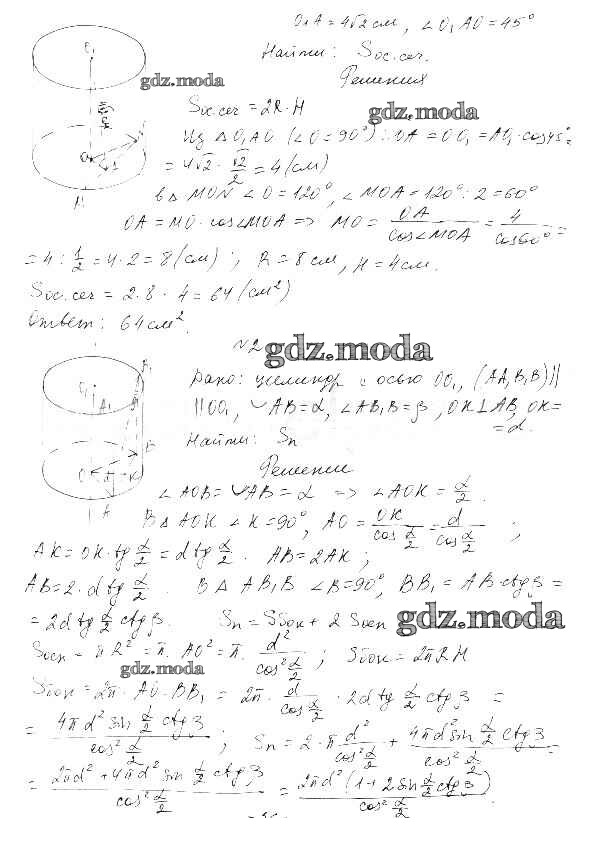 O₁A = 4√2 см, ∠O₁AO = 45°
Найти: Sос.сеч.
Решения
gdz.moda
Sос.сеч = 2R·H
gdz.moda
Из △O₁AO (∠O = 90°): OA = OO₁ = AO₁·cos45° =
= 4√2 · √2/2 = 4 (см)
в △ MON ∠O = 120°, ∠MOA = 120° : 2 = 60°
OA = MO · cos∠MOA => MO = OA/cos∠MOA = 4/cos60° =
= 4 : 1/2 = 4·2 = 8 (см); R = 8 см, H = 4 см.
Sос.сеч = 2·8·4 = 64 (см²)
Ответ: 64 см².
№2
gdz.moda
Дано: цилиндр с осью OO₁, (AA₁B₁B) ||
|| OO₁, ◡AB = α, ∠AB₁B = β, OK ⊥ AB, OK =
= d.
Найти: Sп
Решение
∠AOB = ◡AB = α => ∠AOK = α/2.
В △ AOK ∠K = 90°, AO = OK/cos α/2 = d/cos α/2;
AK = OK·tg α/2 = d tg α/2. AB = 2AK;
AB = 2·d tg α/2. В △ AB₁B ∠B = 90°, BB₁ = AB·ctgβ =
= 2d tg α/2 ctgβ. Sп = Sбок + 2 Sосн
gdz.moda
Sосн = πR² = π·AO² = π· d²/cos² α/2; Sбок = 2πRH
gdz.moda
Sбок = 2π·AO·BB₁ = 2π· d/cos α/2 · 2d tg α/2 ctgβ =
= 4πd² sin α/2 ctgβ/cos² α/2; Sп = 2·π d²/cos² α/2 + 4πd² sin α/2 ctgβ/cos² α/2 =
= 2πd² + 4πd² sin α/2 ctgβ/cos² α/2 = 2πd² (1 + 2 sin α/2 ctgβ)/cos² α/2.
O₁
O
A
M
B₁
O₁
A₁
B
O
K
A